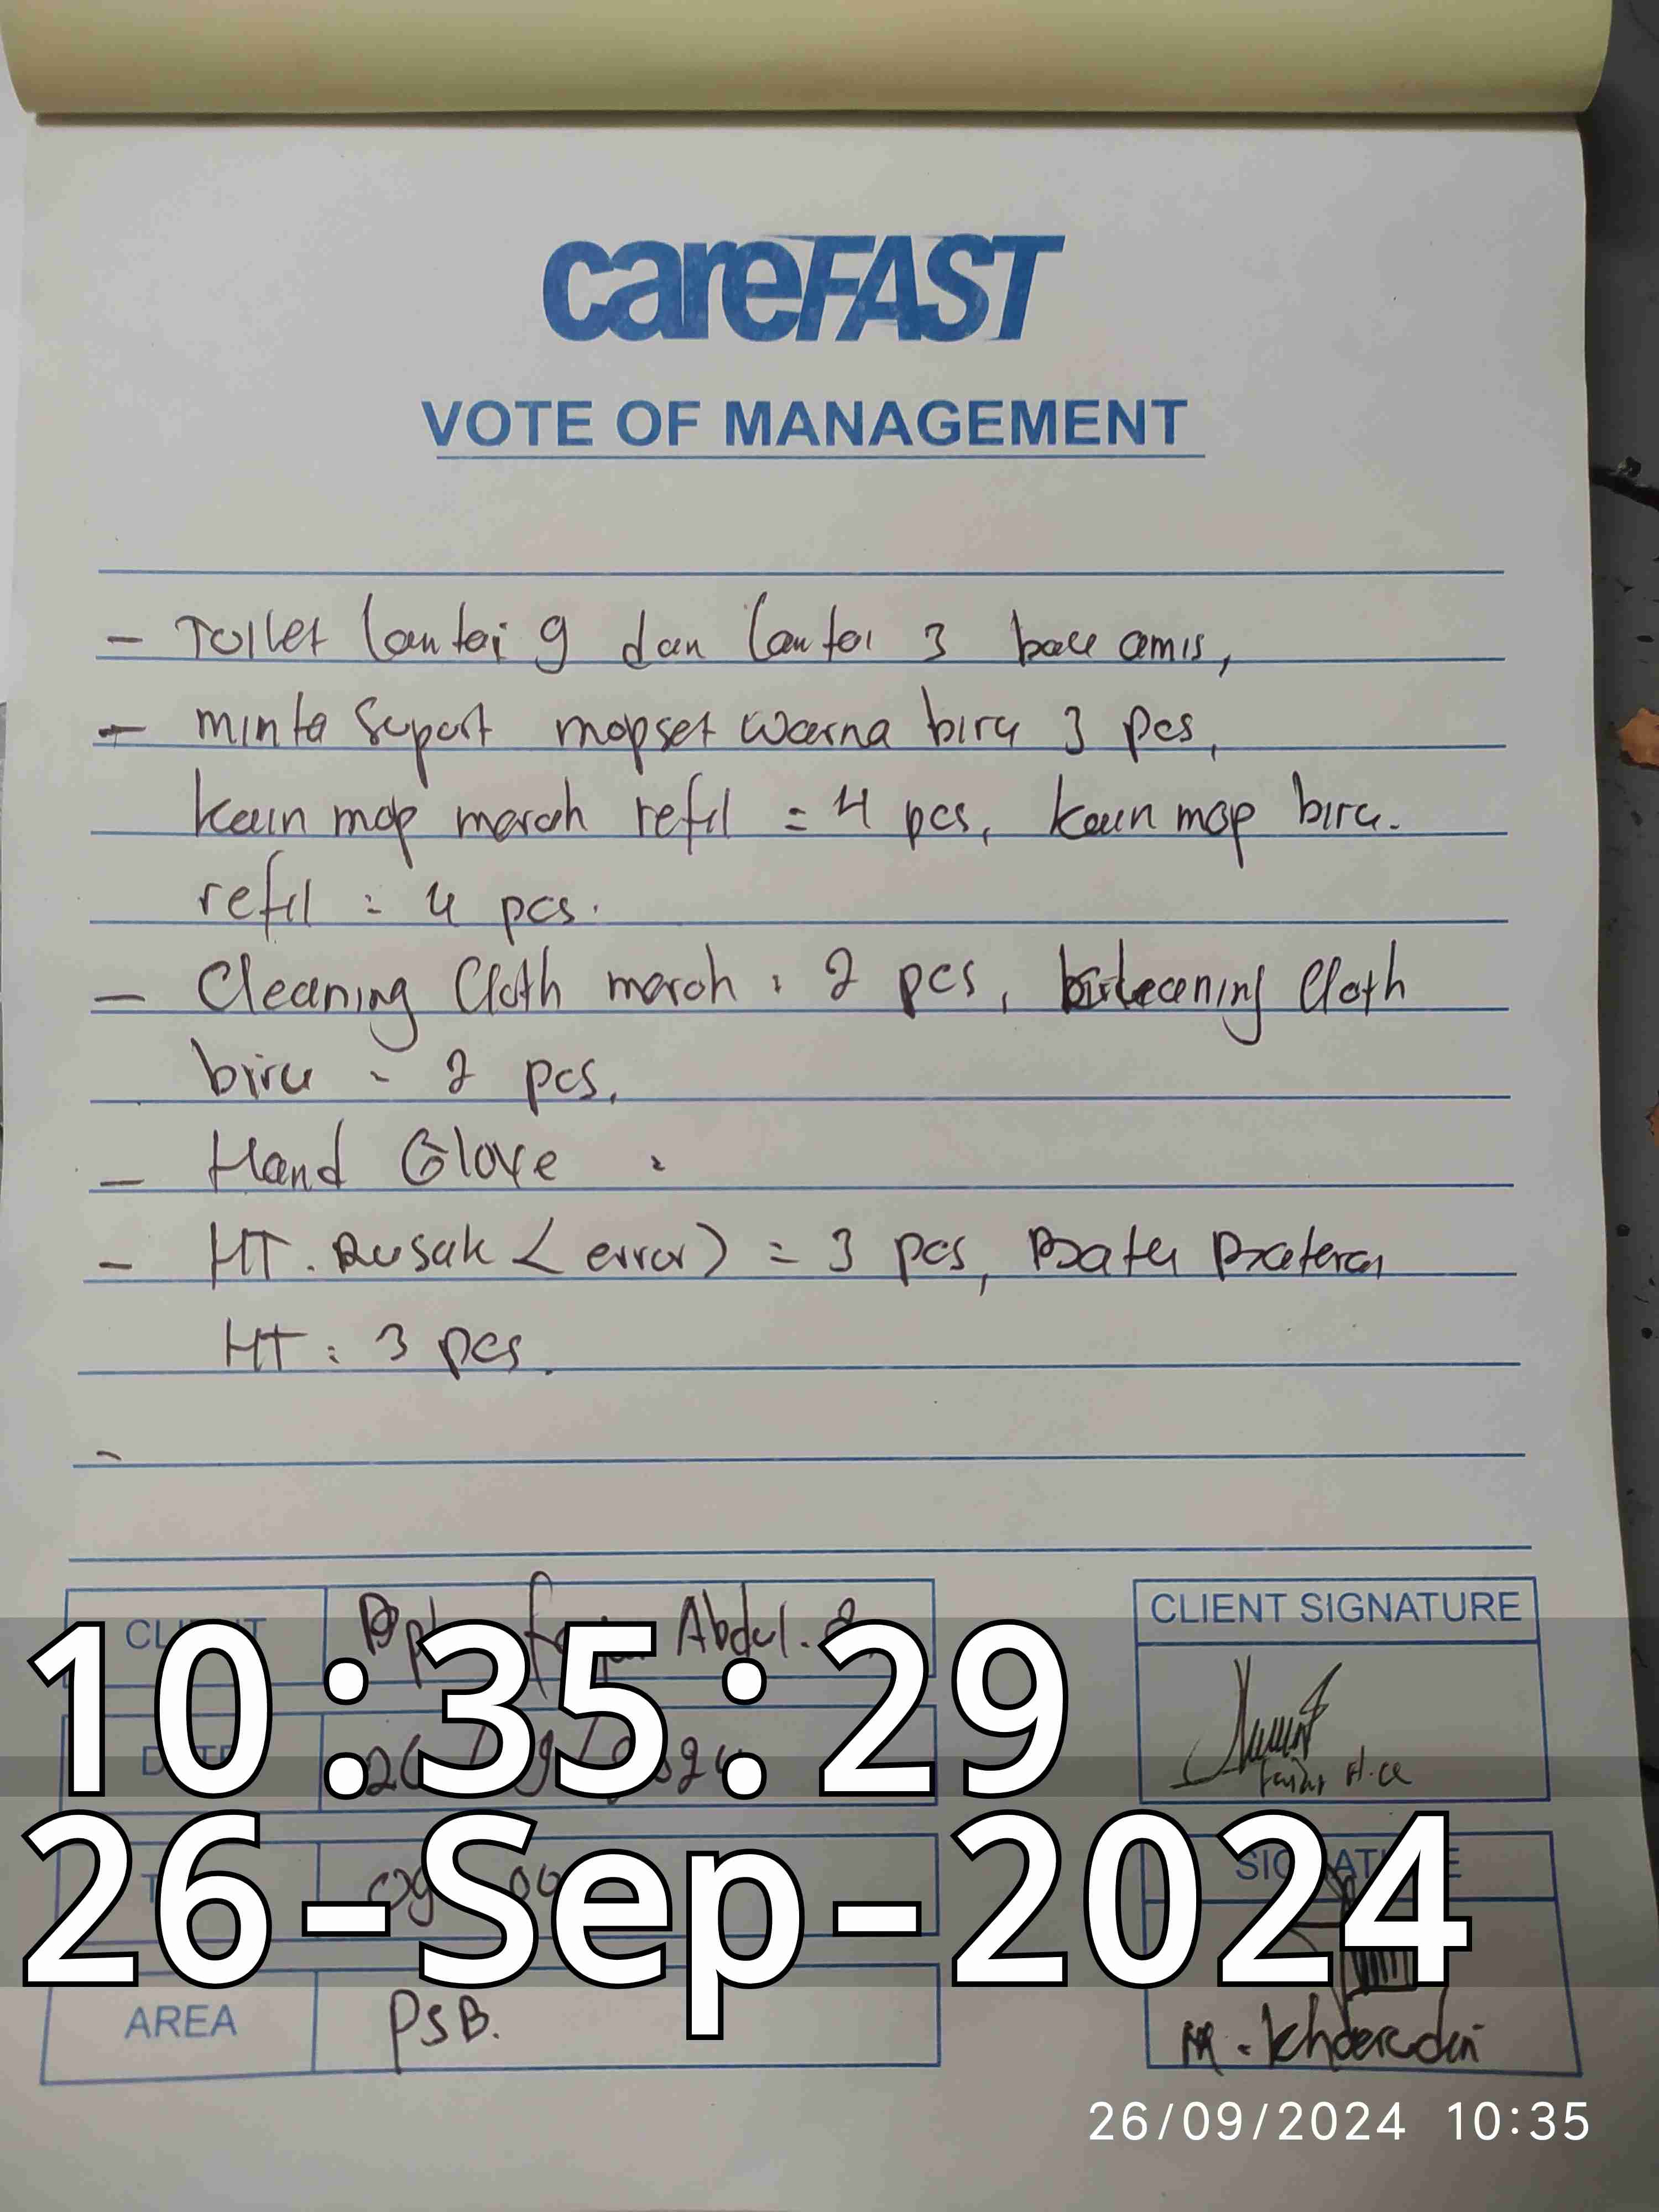 careFAST
VOTE OF MANAGEMENT
- Toilet lantai 9 dan lantai 3 bau amis,
- minta suport mopset warna biru 3 pcs,
kain mop merah refil = 4 pcs, kain mop biru.
refil = 4 pcs.
- Cleaning Cloth merah : 2 pcs, cleaning Cloth
biru - 2 pcs.
- Hand Glove :
- HT. Rusak (error) = 3 pcs, Batu Baterai
HT : 3 pcs.
-
CLIENT Abdul.
CLIENT SIGNATURE
10:35:29
26-Sep-2024
SIGNATURE
AREA PSB.
M. Khaerudin
26/09/2024 10:35